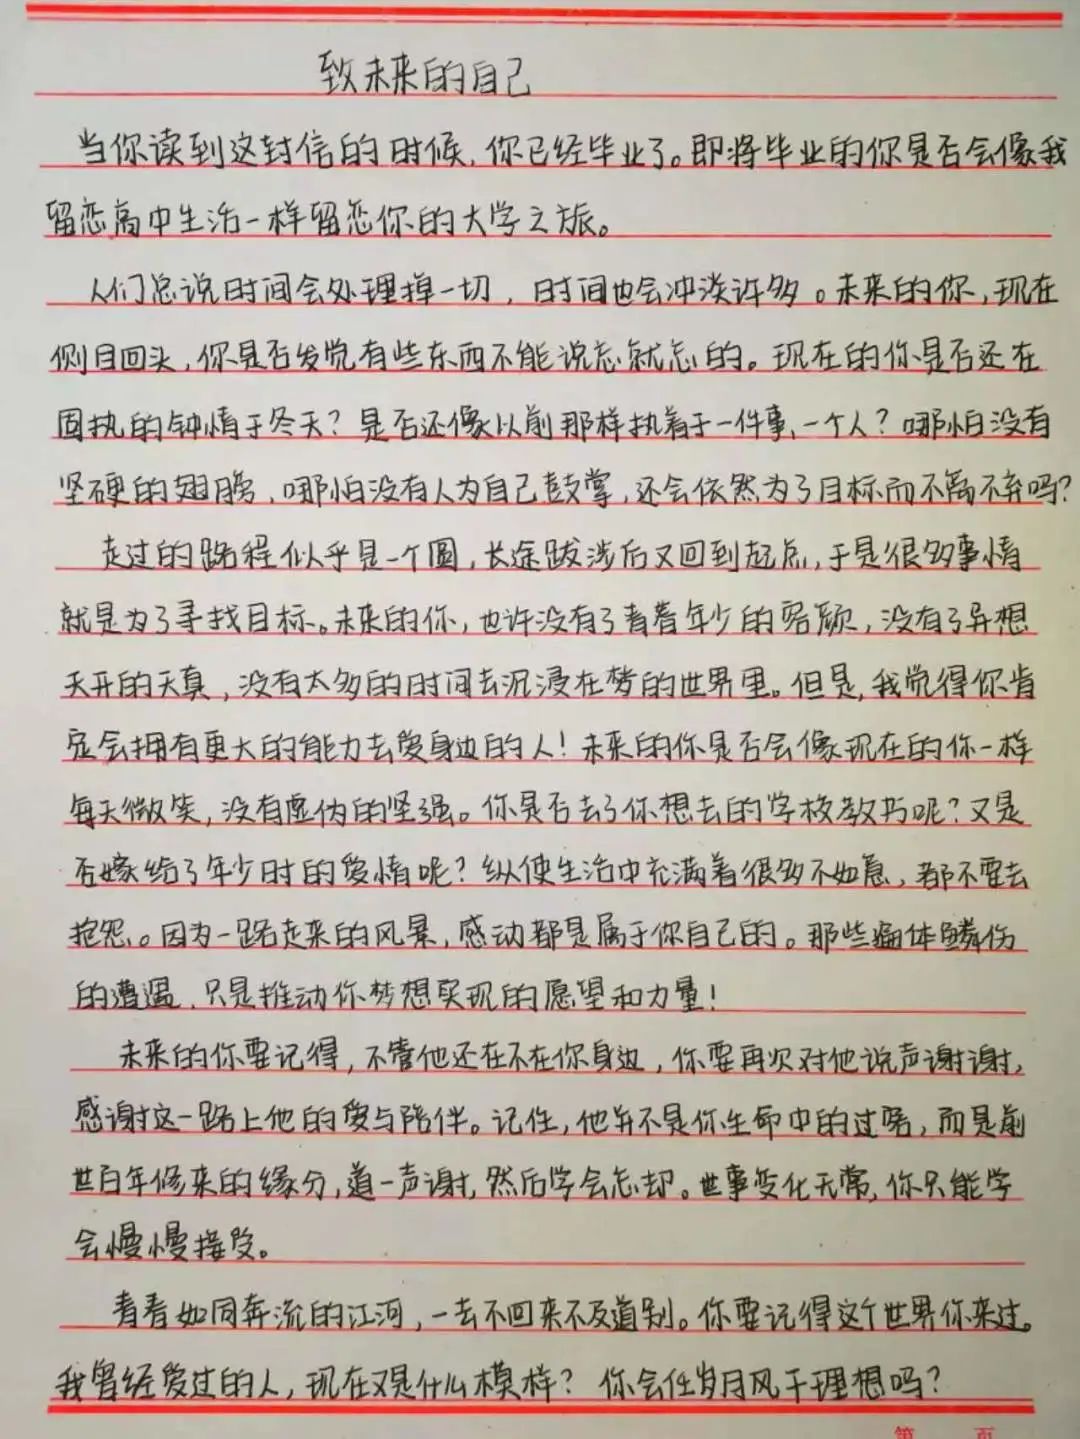 致未来的自己
当你读到这封信的时候,你已经毕业了。即将毕业的你是否会像我
留恋高中生活一样留恋你的大学之旅。
人们总说时间会处理掉一切,时间也会冲淡许多。未来的你,现在
侧目回头,你是否发觉有些东西不能说忘就忘的。现在的你是否还在
固执的钟情于冬天?是否还像以前那样执着于一件事、一个人?哪怕没有
坚硬的翅膀,哪怕没有人为自己鼓掌,还会依然为了目标而不离不弃吗?
走过的路程似乎是一个圆,长途跋涉后又回到起点,于是很多事情
就是为了寻找目标。未来的你,也许没有了青春年少的容颜,没有了异想
天开的天真,没有太多的时间去沉浸在梦的世界里。但是,我觉得你肯
定会拥有更大的能力去爱身边的人!未来的你是否会像现在的你一样
每天微笑,没有虚伪的坚强。你是否去了你想去的学校教书呢?又是
否嫁给了年少时的爱情呢?纵使生活中充满着很多不如意,都不要去
抱怨。因为一路走来的风景,感动都是属于你自己的。那些遍体鳞伤
的遭遇,只是推动你梦想实现的愿望和力量!
未来的你要记得,不管他还在不在你身边,你要再次对他说声谢谢,
感谢这一路上他的爱与陪伴。记住,他并不是你生命中的过客,而是前
世百年修来的缘分,道一声谢,然后学会忘却。世事变化无常,你只能学
会慢慢接受。
青春如同奔流的江河,一去不回来不及道别。你要记得这个世界你来过。
我曾经爱过的人,现在又是什么模样?你会任岁月风干理想吗?
第 页